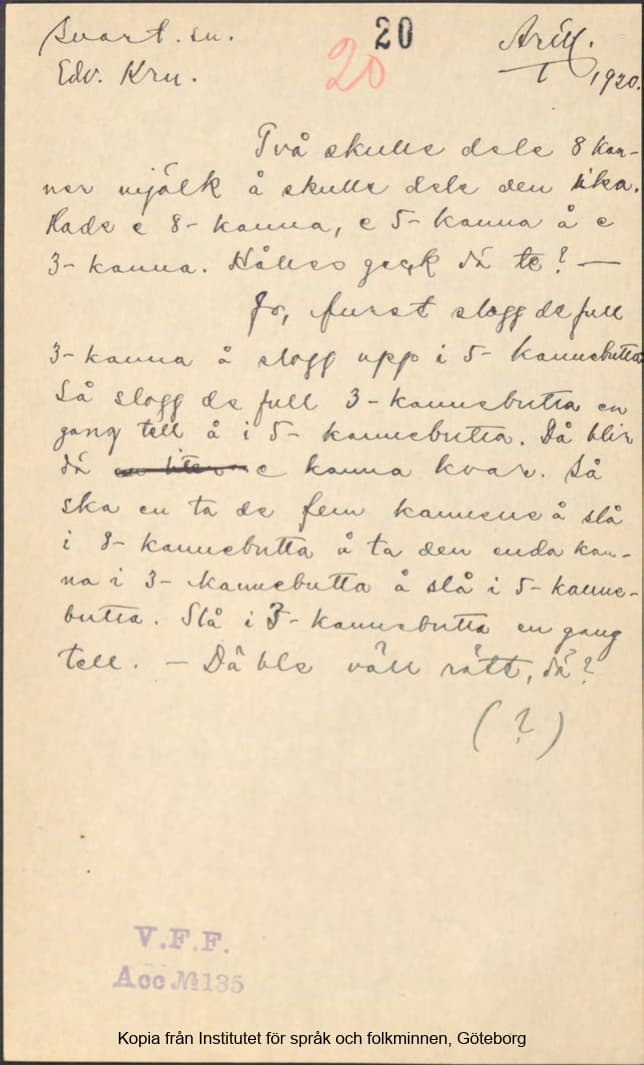 Svart. sn. 20 Aritl.
Edv. Kru. 20 1 1920.
Två skulle dele 8 kan-
ner mjölk å skulle dele den lika.
Hade e 8- kanna, e 5- kanna å e
3- kanna. Hålles geck dä te? —
Jo, furst slogg de full
3- kanna å slogg upp i 5- kannebutta
Så slogg de full 3- kannebutta en
gang tell å i 5- kannebutta. Då blir
dä e kanna kvar. Så
ska en ta de fem kannene å slå
i 8- kannebutta å ta den enda kan-
na i 3- kannebutta å slå i 5- kanne-
butta. Slå i 3- kannebutta en gang
tell. — Då ble väll rätt, dä?
(?)
V.F.F.
Acc № 135
Kopia från Institutet för språk och folkminnen, Göteborg